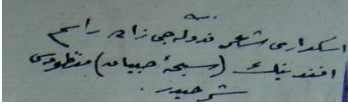 اسكداری شاعر فدوله‌جی زاده راسم
افندینك (سبحهٔ صبیان) منظومه‌سی
شرحیدر.